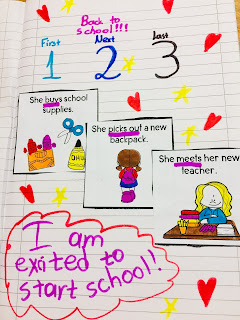 Back to
school!!!
First
Next
Last
1
2
3
She buys school
supplies.
She picks out a new
backpack.
She meets her new
teacher.
I am
exited to
start school!